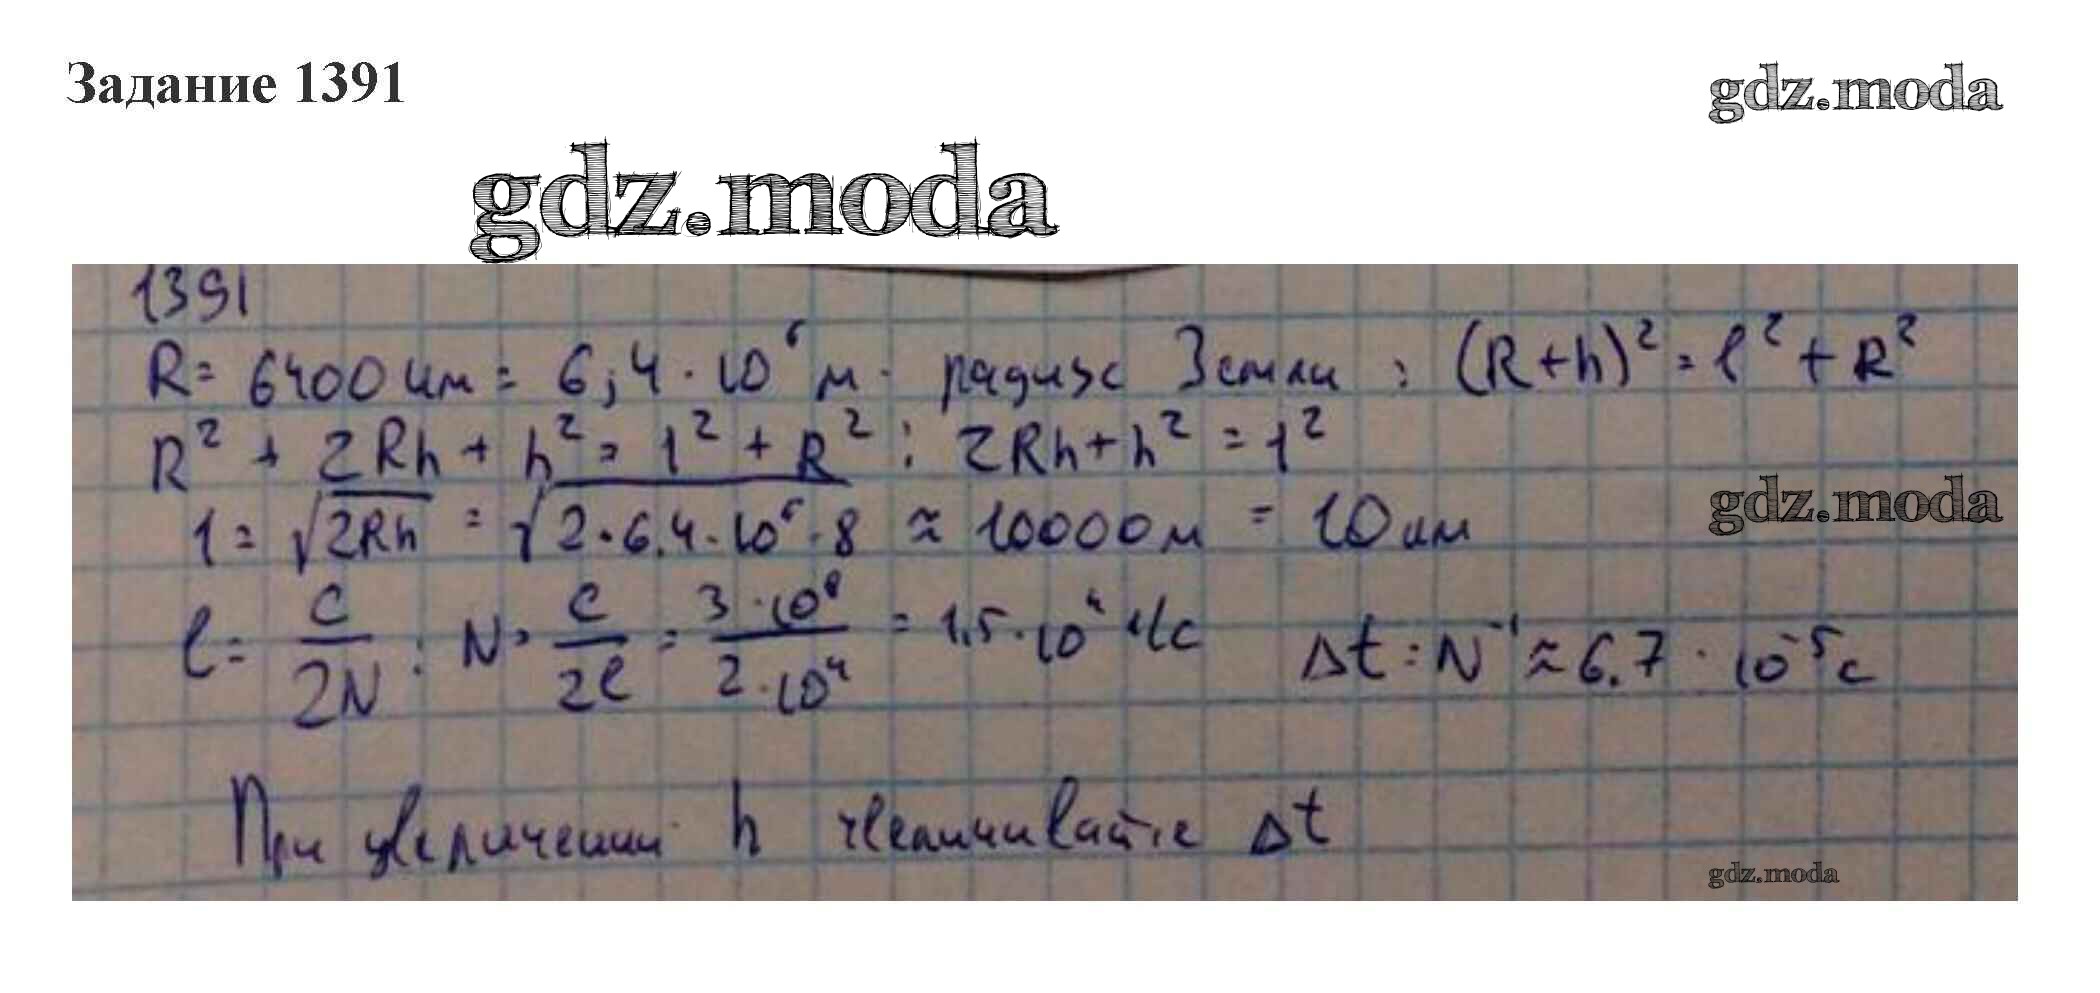 Задание 1391
gdz.moda
gdz.moda
1391
R = 6400 км = 6,4 · 10⁶ м · радиус Земли ; (R+h)² = l² + R²
R² + 2Rh + h² = l² + R² ; 2Rh + h² = l²
l = √2Rh = √2·6.4·10⁶·8 ≈ 10000 м = 10 км
gdz.moda
l = c/2N ; N = c/2l = 3·10⁸/2·10⁴ = 1.5·10⁴ 1/c Δt = N⁻¹ ≈ 6.7 · 10⁻⁵ c
При увеличении h Δt
gdz.moda